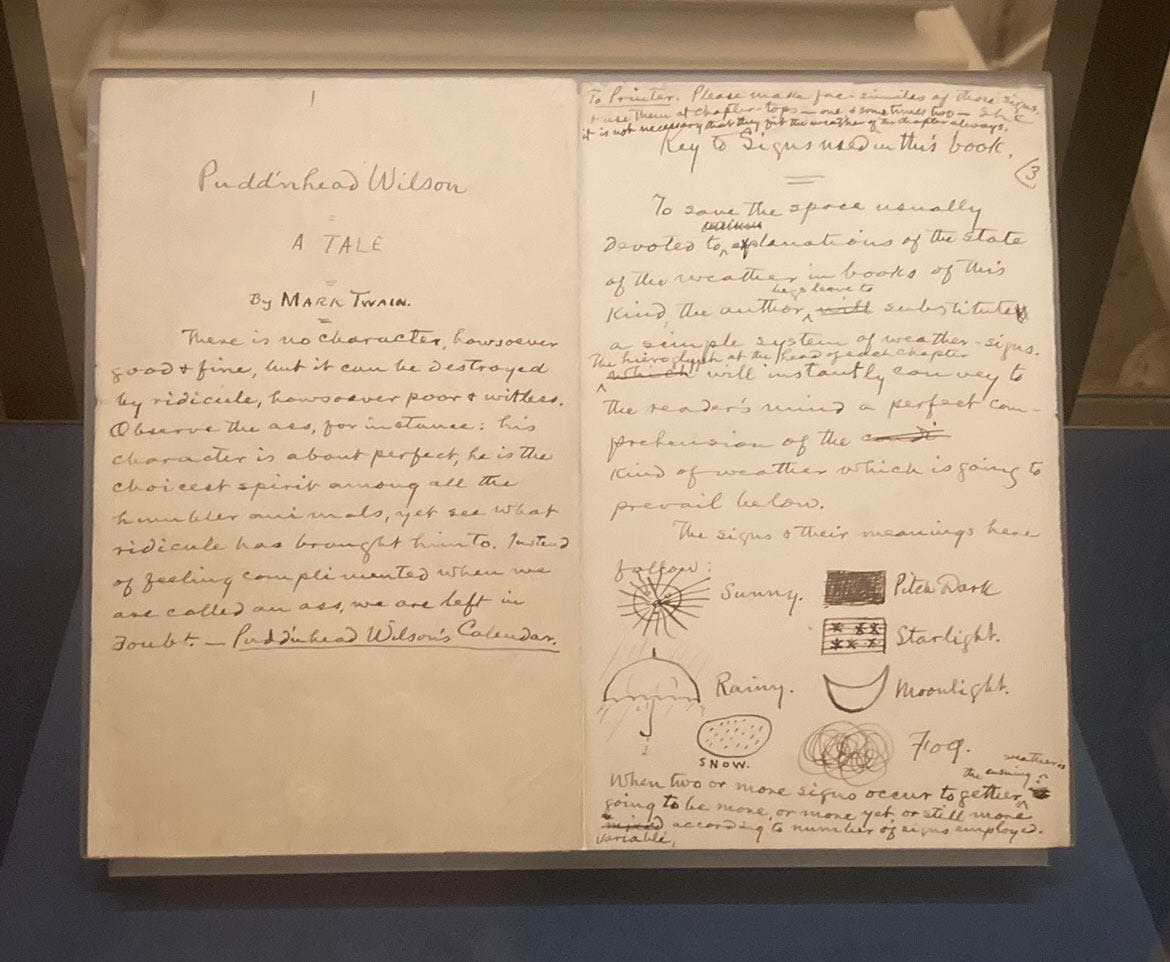 1
Pudd'nhead Wilson
A TALE
By MARK TWAIN.
There is no character, howsoever
good & fine, but it can be destroyed
by ridicule, howsoever poor & witless.
Observe the ass, for instance: his
character is about perfect, he is the
choicest spirit among all the
humbler animals, yet see what
ridicule has brought him to. Instead
of feeling complimented when we
are called an ass, we are left in
doubt. — Pudd'nhead Wilson's Calendar.
To Printer. Please make fac-similes of these signs,
& use them at chapter-tops — one & sometimes two — SLC
it is not necessary that they fit the weather of the chapter always.
Key to Signs used in this book.
3
To save the space usually
devoted to explanations of the state
of the weather in books of this
begs leave to
kind, the author will substitute
a simple system of weather-signs.
The hieroglyph at the head of each chapter
which will instantly convey to
the reader's mind a perfect com-
prehension of the condi
kind of weather which is going to
prevail below.
The signs & their meanings here
follow:
Sunny.
Pitch Dark
Starlight.
Rainy.
Moonlight.
SNOW.
Fog.
weather is
the ensuing
When two or more signs occur together,
going to be more, or more yet, or still more
mixed according to number of signs employed.
variable,